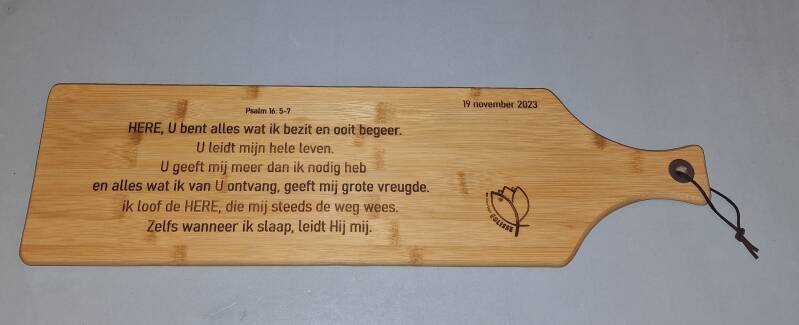 Psalm 16: 5-7
19 november 2023
HERE, U bent alles wat ik bezit en ooit begeer.
U leidt mijn hele leven.
U geeft mij meer dan ik nodig heb
en alles wat ik van U ontvang, geeft mij grote vreugde.
ik loof de HERE, die mij steeds de weg wees.
Zelfs wanneer ik slaap, leidt Hij mij.
ÉGLISSE